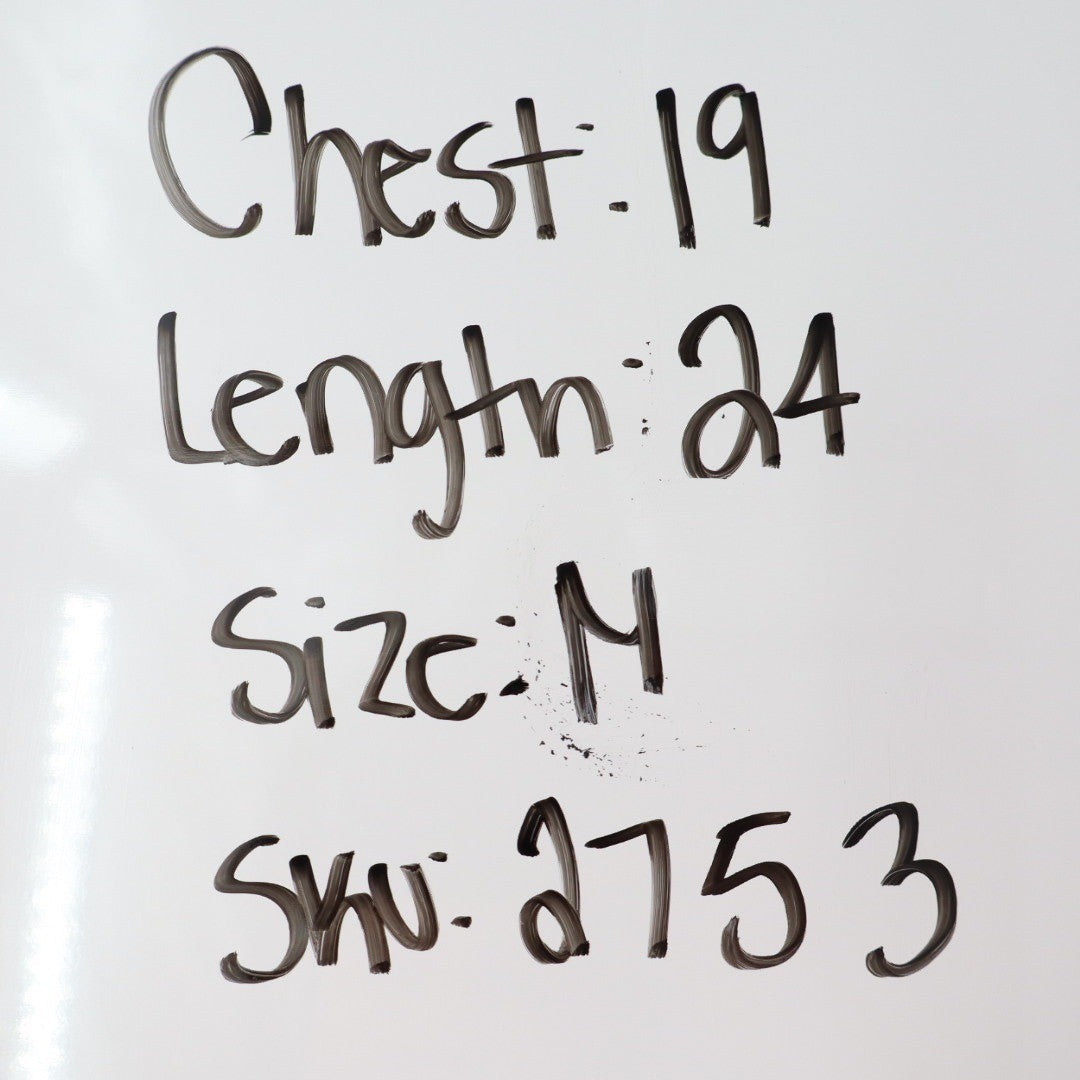 Chest: 19
Length: 24
Size: M
Sku: 2753